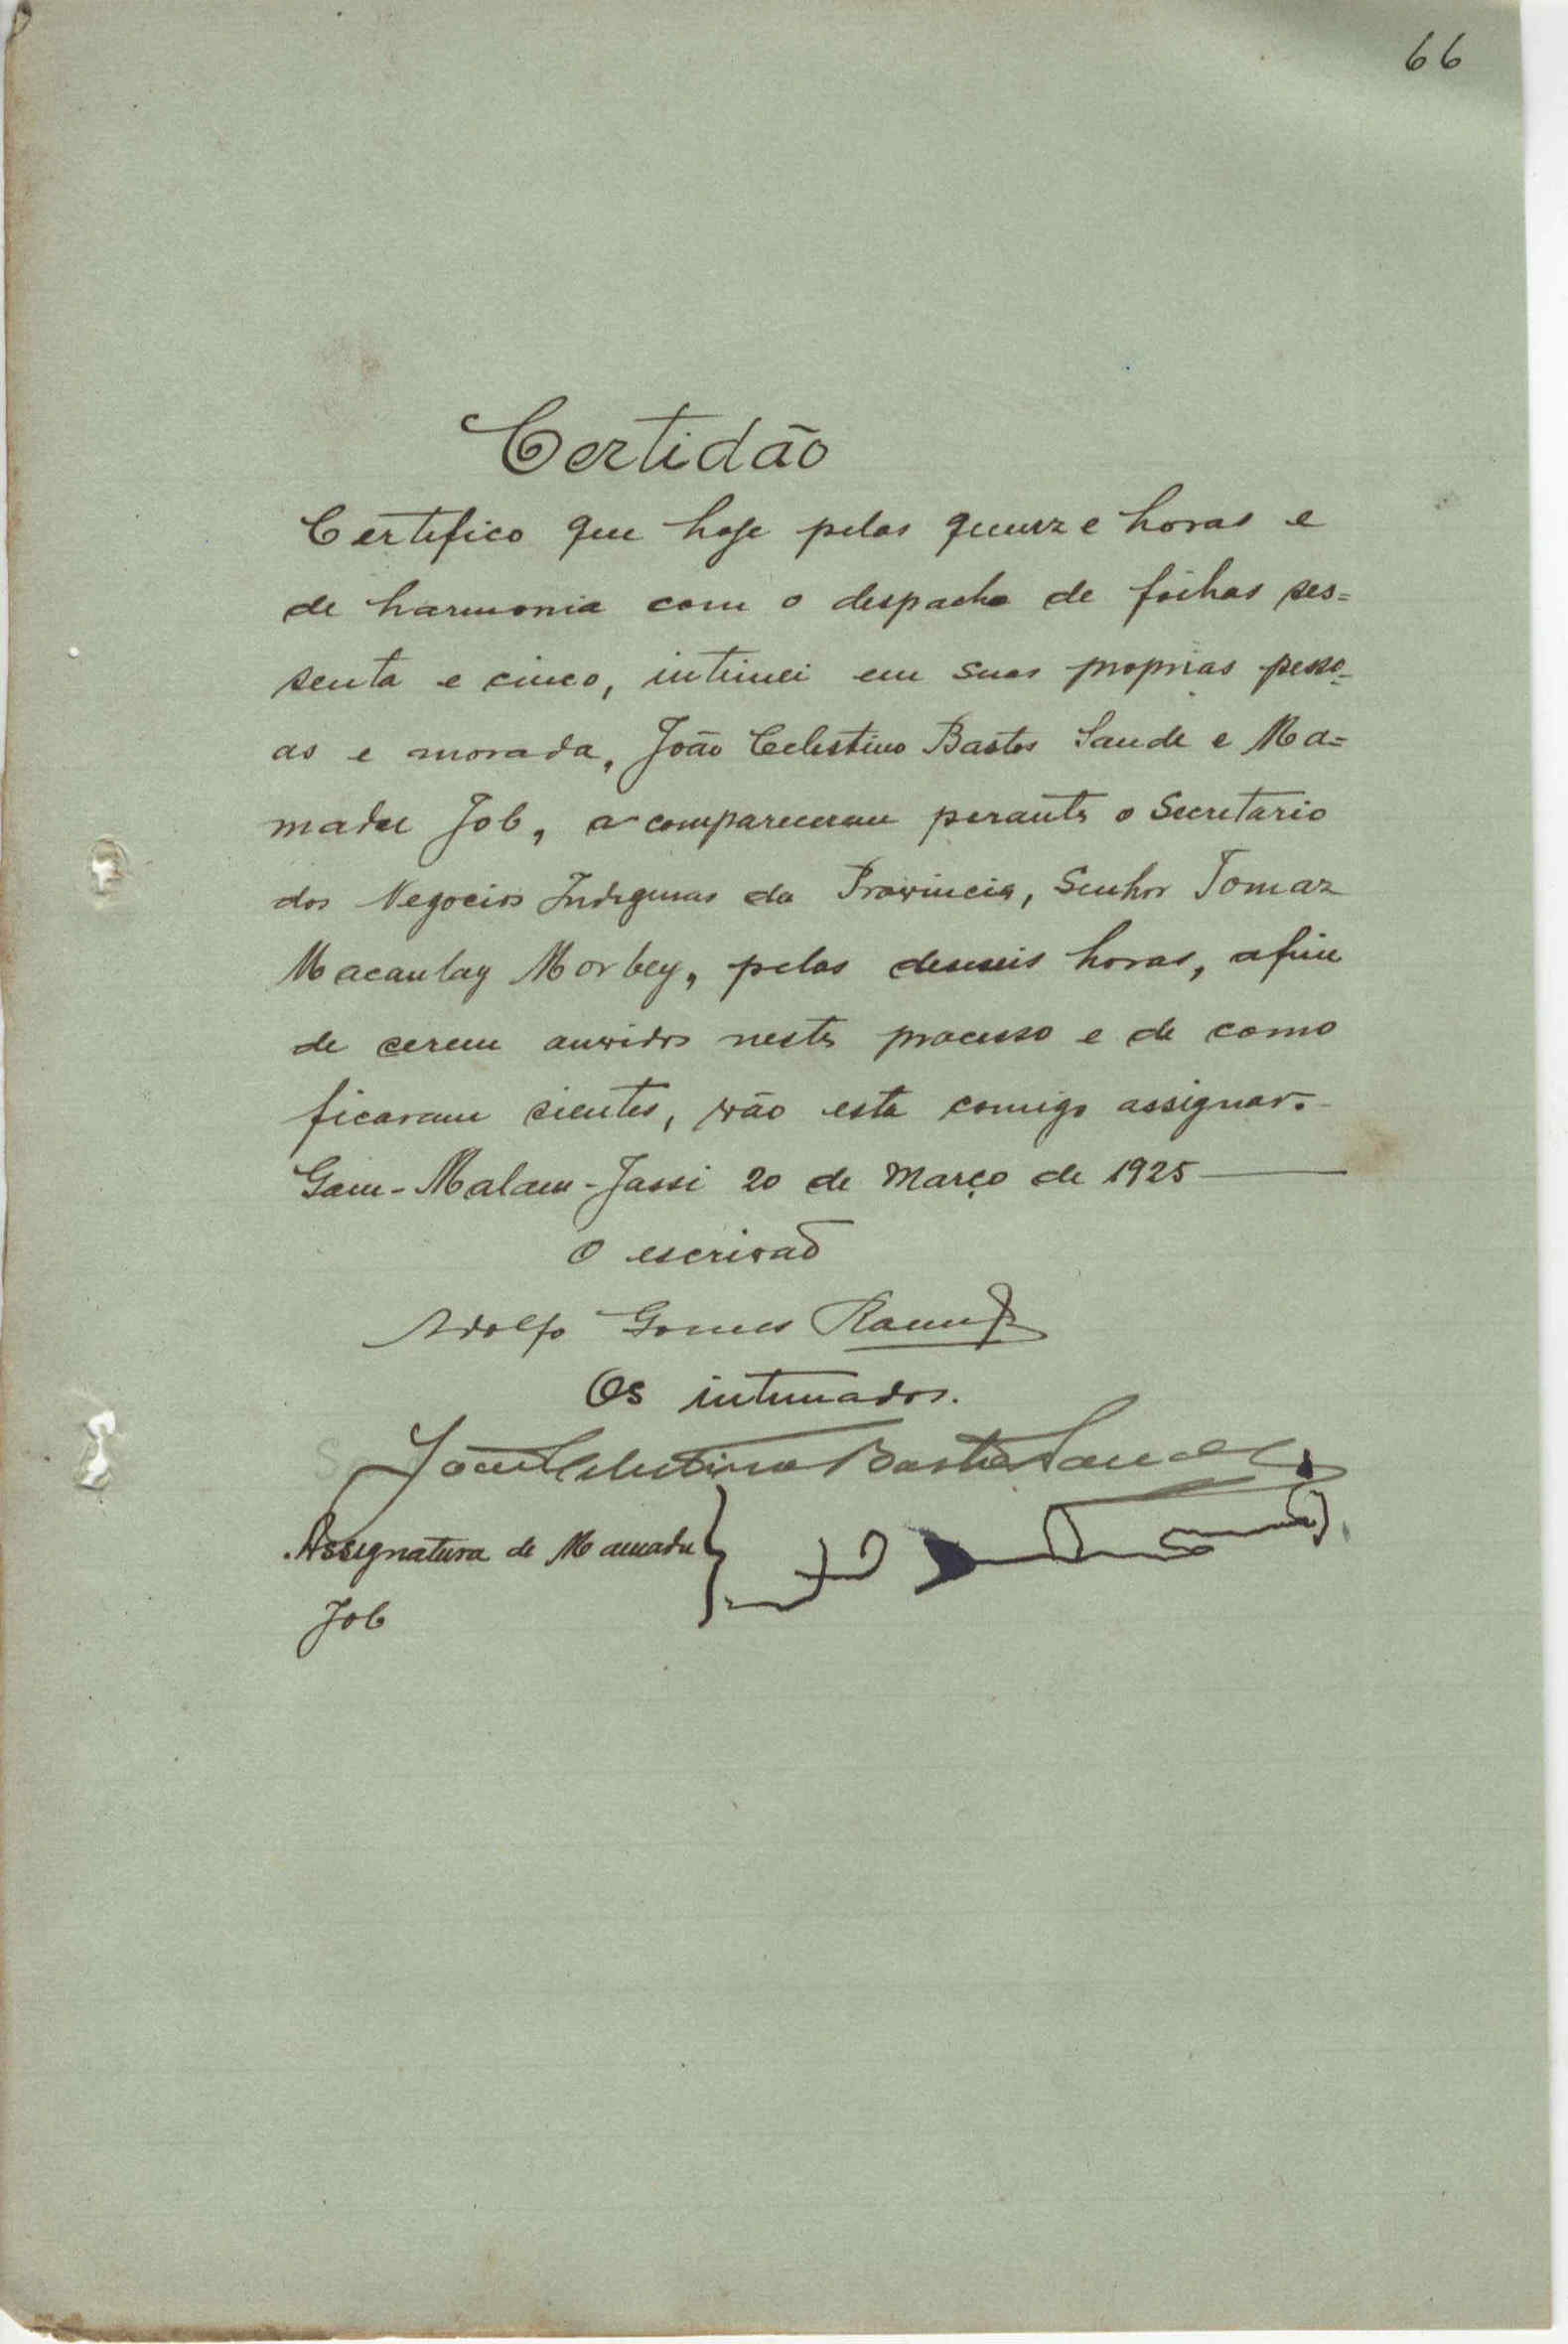 66
Certidão
Certifico que hoje pelas quinze horas e
de harmonia com o despacho de folhas ses=
senta e cinco, intimei em suas proprias pesso-
as e morada, João Celestino Bastos Saude e Ma=
madu Job, a comparecerem perante o Secretario
dos Negocios Indigenas da Provincia, Senhor Tomaz
Macaulay Morbey, pelas deseseis horas, afim
de cerem ouvidos neste processo e de como
ficaram sientes, vão esta comigo assignar.-
Gam-Malam-Jassi 20 de Março de 1925
O escrivaõ
Adolfo Gomes Ramos
Os intimados.
João Celestino Bastos Saude
Assignatura de Mamadu
Job